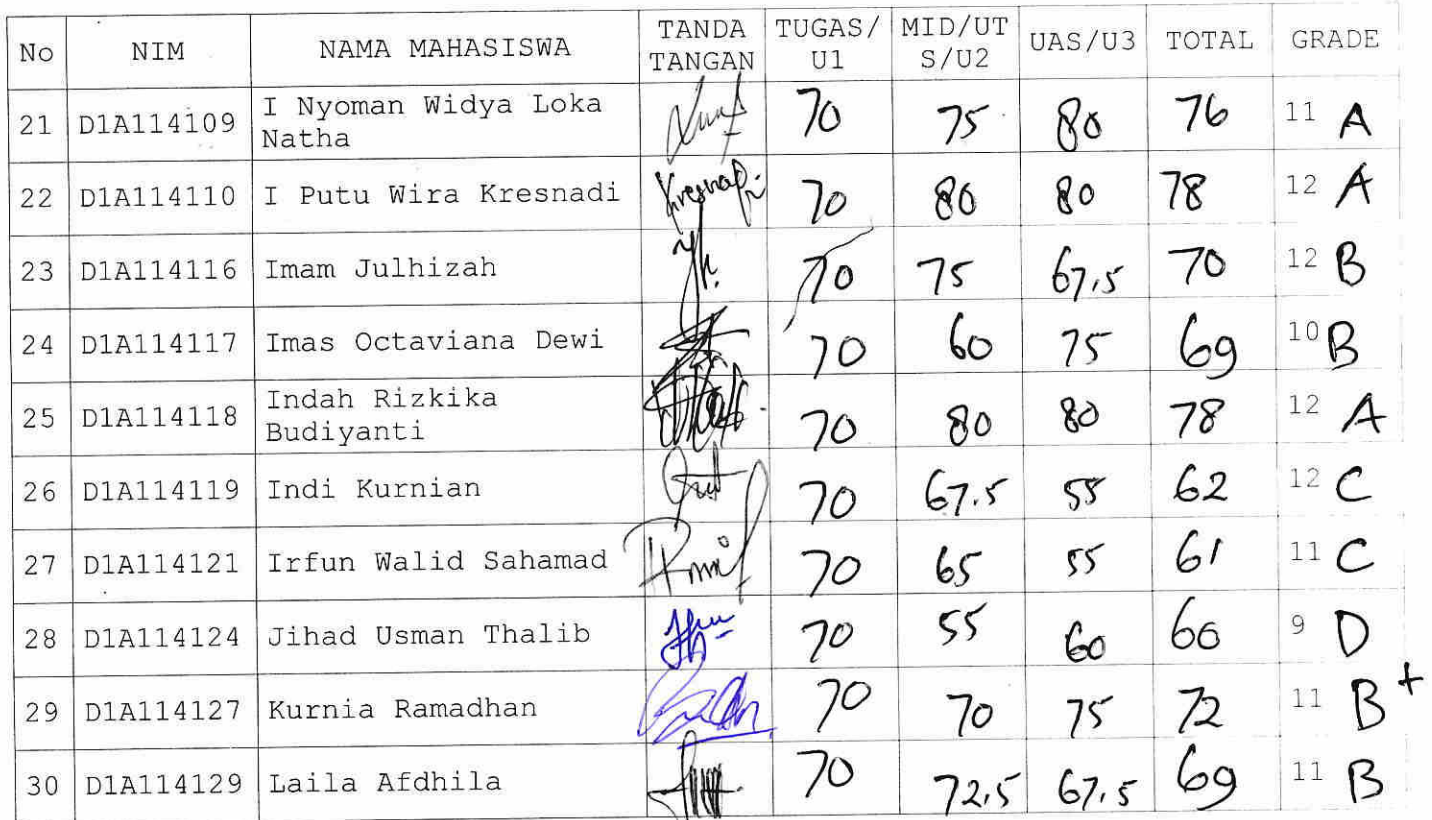 No NIM NAMA MAHASISWA TANDA TANGAN TUGAS/U1 MID/UTS/U2 UAS/U3 TOTAL GRADE
21 D1A114109 I Nyoman Widya Loka Natha 70 75 80 76 11 A
22 D1A114110 I Putu Wira Kresnadi 70 80 80 78 12 A
23 D1A114116 Imam Julhizah 70 75 67,5 70 12 B
24 D1A114117 Imas Octaviana Dewi 70 60 75 69 10 B
25 D1A114118 Indah Rizkika Budiyanti 70 80 80 78 12 A
26 D1A114119 Indi Kurnian 70 67.5 55 62 12 C
27 D1A114121 Irfun Walid Sahamad 70 65 55 61 11 C
28 D1A114124 Jihad Usman Thalib 70 55 60 60 9 D
29 D1A114127 Kurnia Ramadhan 70 70 75 72 11 B+
30 D1A114129 Laila Afdhila 70 72,5 67,5 69 11 B